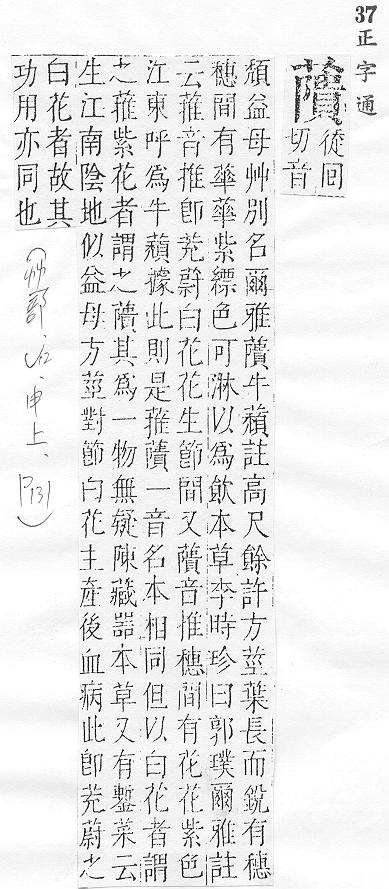 37正字通
藬
從回
切音
頽益母艸別名爾雅藬牛蘈註高尺餘許方莖葉長而銳有穗
穗間有華華紫縹色可淋以爲飮本草李時珍曰郭璞爾雅註
云蓷音推卽茺蔚白花花生節間又藬音推穗間有花花紫色
江東呼爲牛蘈據此則是蓷藬一音名本相同但以白花者謂
之蓷紫花者謂之藬其爲一物無疑陳藏器本草又有鏨菜云
生江南陰地似益母方莖對節白花主產後血病此卽茺蔚之
白花者故其
功用亦同也
(艸部、申上、P131)